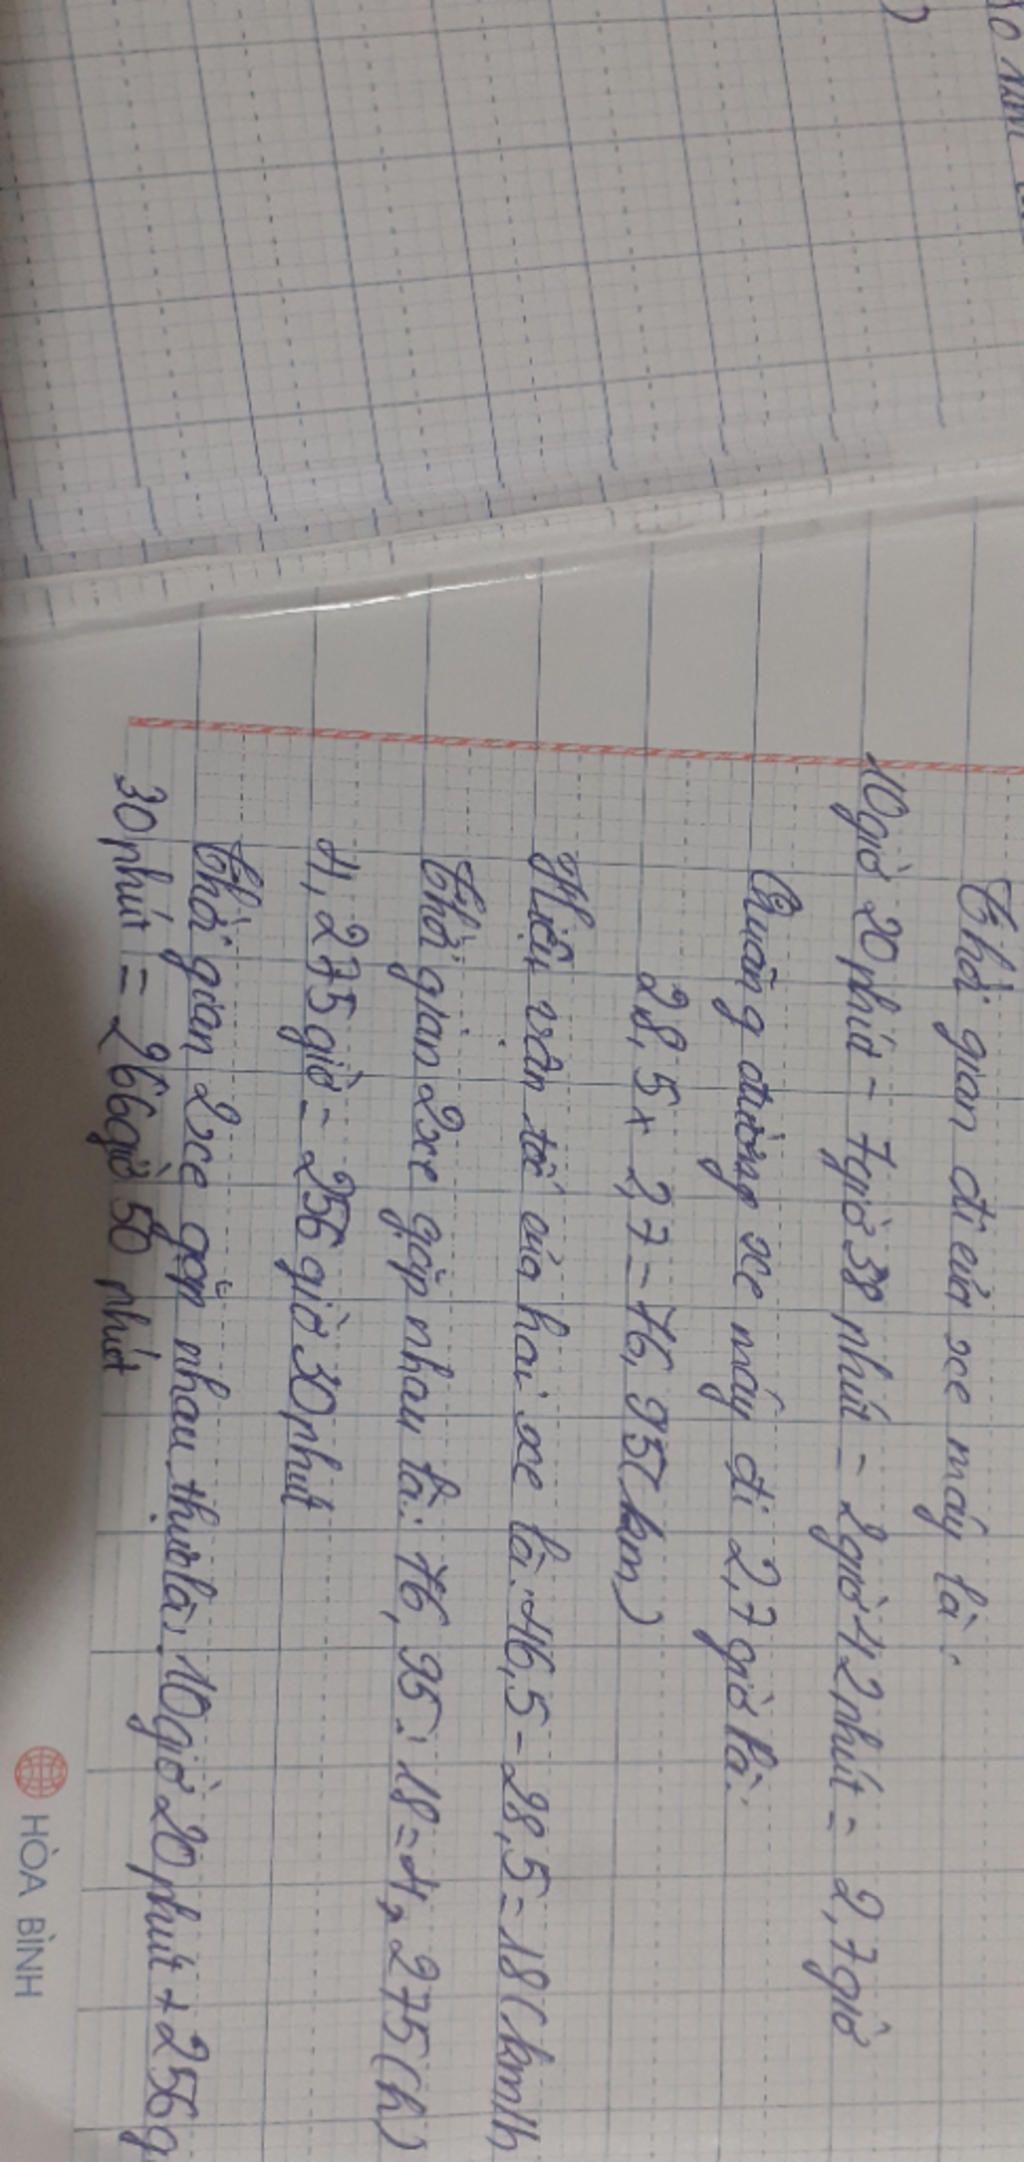 Thời gian đi của xe máy là:
10 giờ 20 phút - 7 giờ 38 phút = 2 giờ 42 phút = 2,7 giờ
Quãng đường xe máy đi 2,7 giờ là:
28,5 x 2,7 = 76,95 (km)
Hiệu vận tố của hai xe là: 46,5 - 28,5 = 18 (km/h
Thời gian 2 xe gặp nhau là: 76,95 : 18 = 4,275 (h)
4,275 giờ = 256 giờ 30 phút
Thời gian 2 xe gặp nhau thực là: 10 giờ 20 phút + 256 g
30 phút = 266 giờ 50 phút
HÒA BÌNH